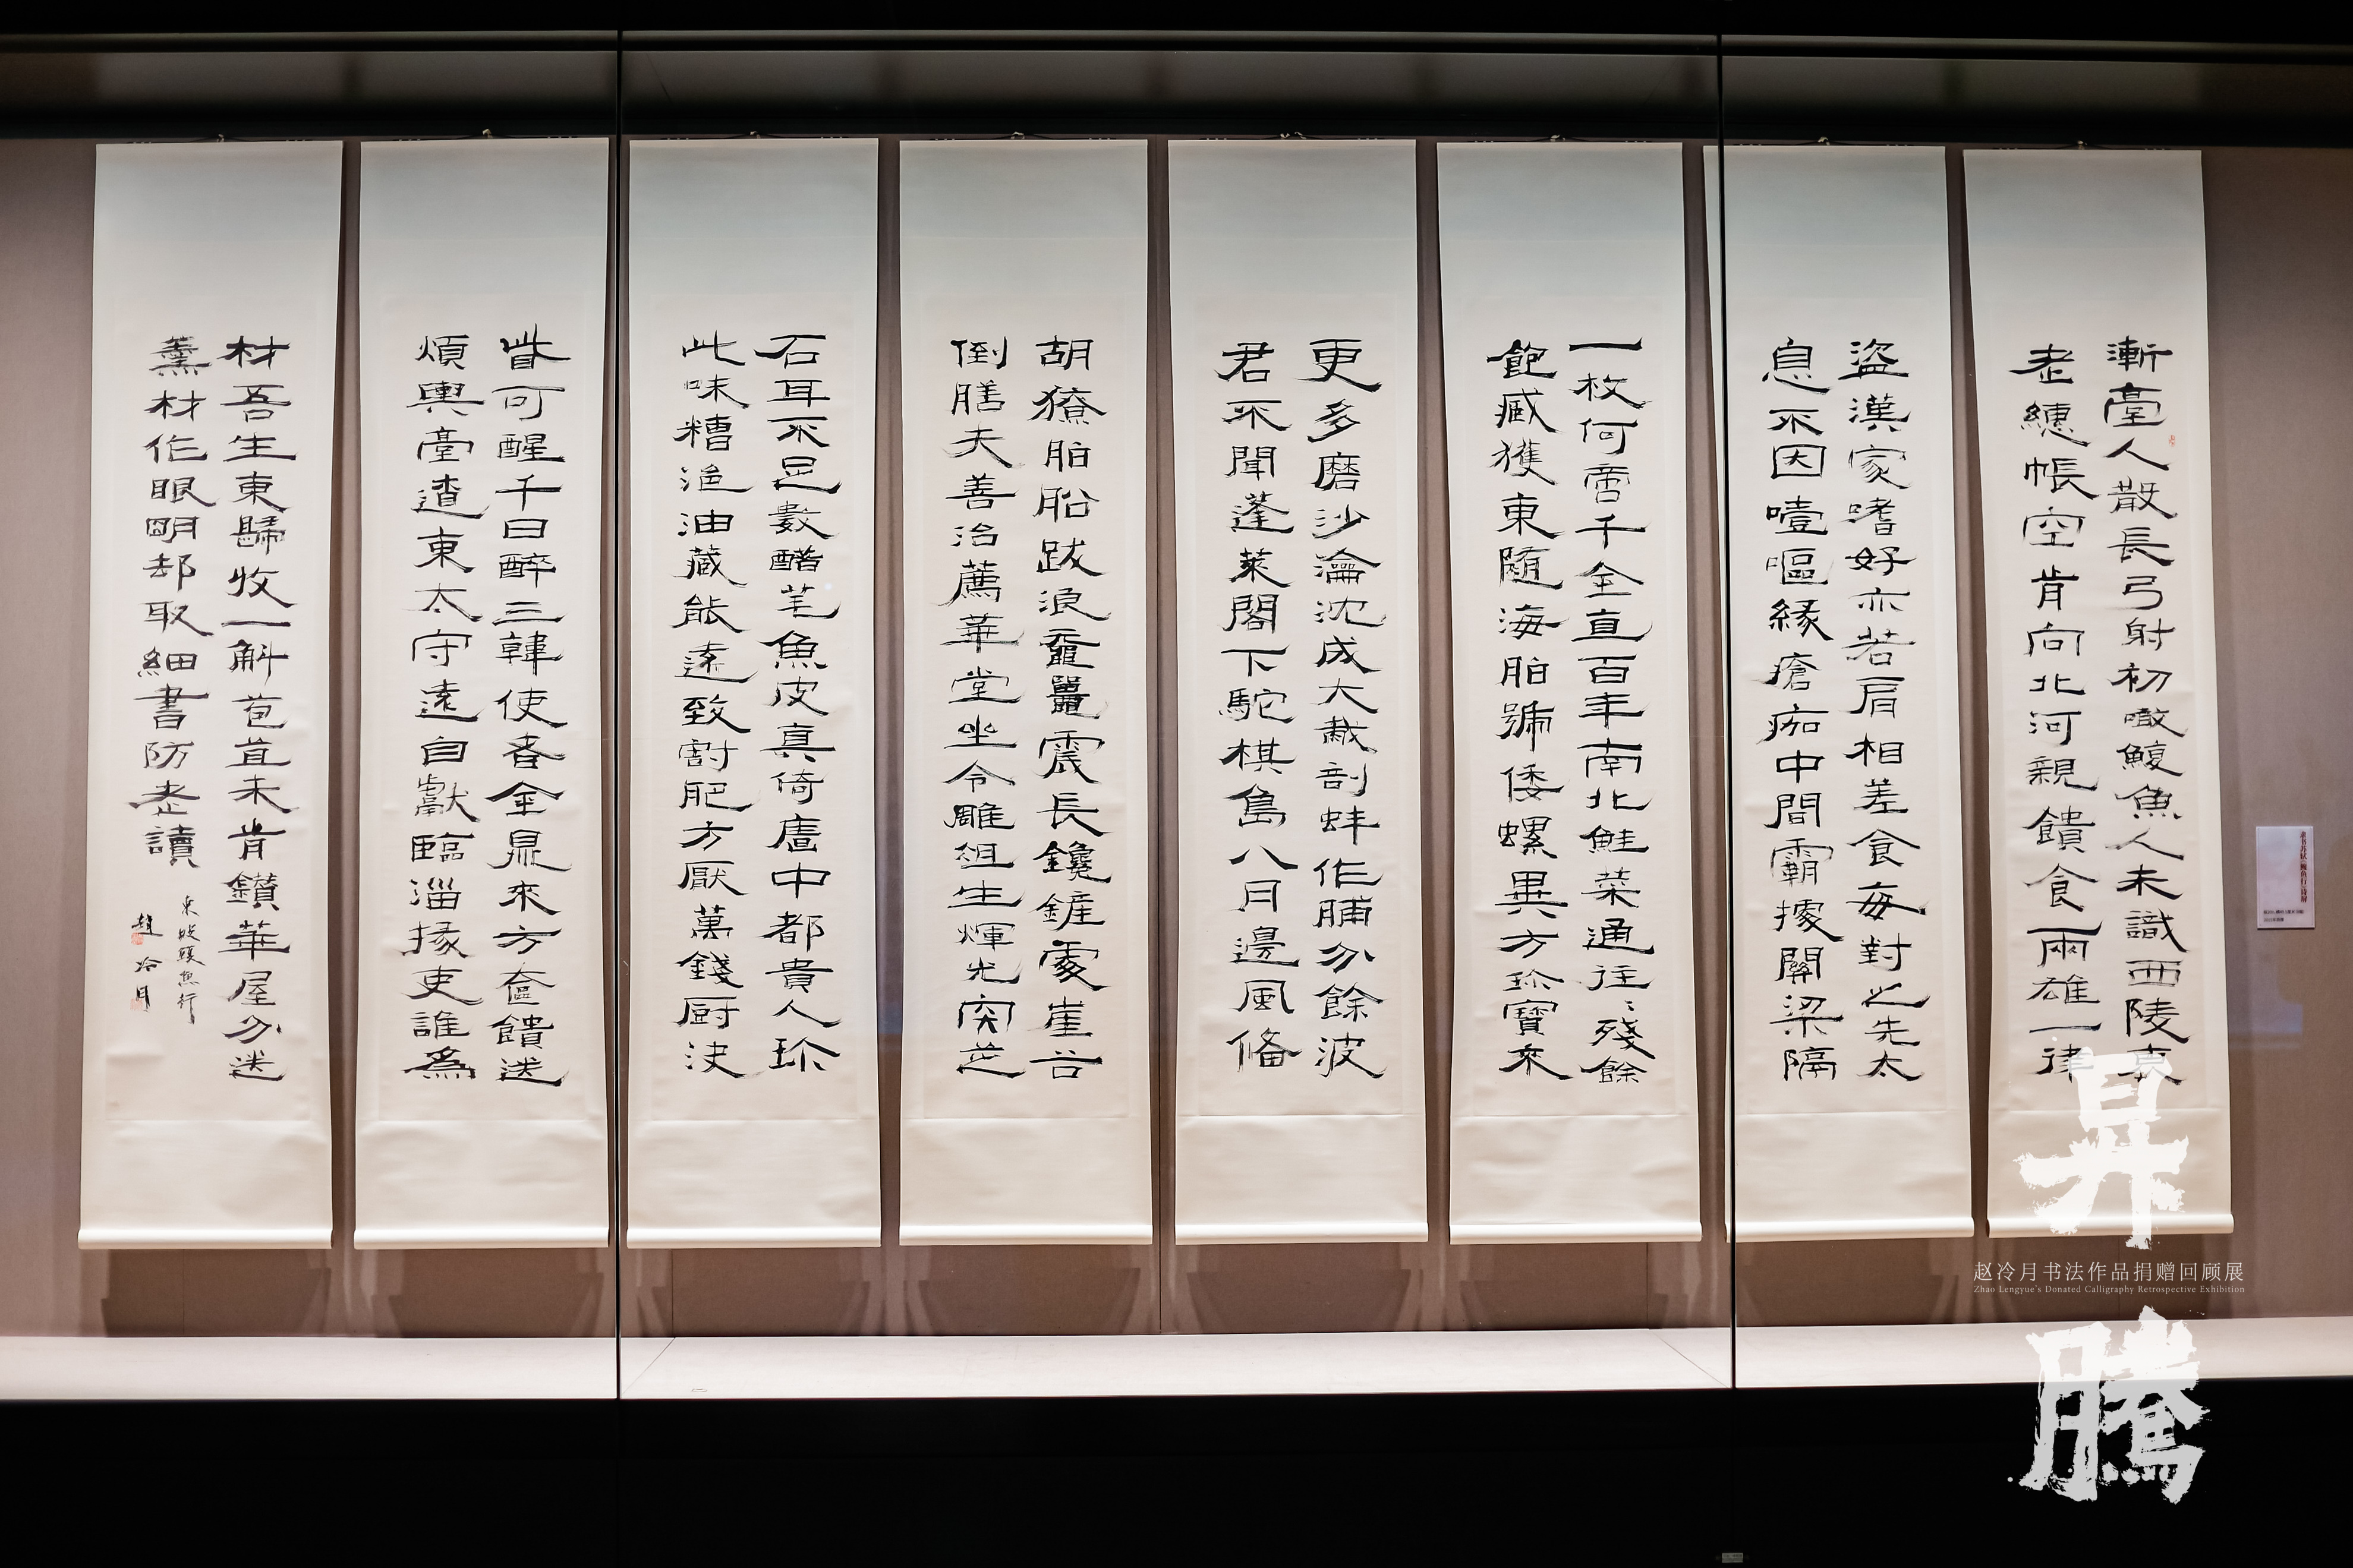 漸臺人散長弓射初噉鰒魚人未識西陵衰
老繐帳空肯向北河親饋食兩雄一律
盜漢家嗜好亦若肩相差食每對之先太
息不因噎嘔緣瘡痂中間霸據關梁隔
一枚何啻千金直百年南北鮭菜通往〻殘餘
飽臧獲東隨海舶號倭螺異方珎寶來
更多磨沙瀹沈成大胾剖蚌作脯分餘波
君不聞蓬萊閣下駝棋島八月邊風備
胡獠舶船跋浪黿鼉震長鑱鏟處崖谷
倒膳夫善治薦華堂坐令雕俎生輝光宍芝
石耳不足數醋芼魚皮真倚廬中都貴人珎
此味糟浥油藏能遠致割肥方厭萬錢厨決
眥可醒千日醉三韓使者金鼎來方奩饋送
煩輿臺遼東太守遠自獻臨淄掾吏誰為
材吾生東歸收一斛苞苴未肯鑽華屋分送
羹材作眼明却取細書防老讀
東坡鰒魚行
趙冷月
隶书苏轼《鳆鱼行》诗屏
昇騰
赵冷月书法作品捐赠回顾展
Zhao Lengyue's Donated Calligraphy Retrospective Exhibition